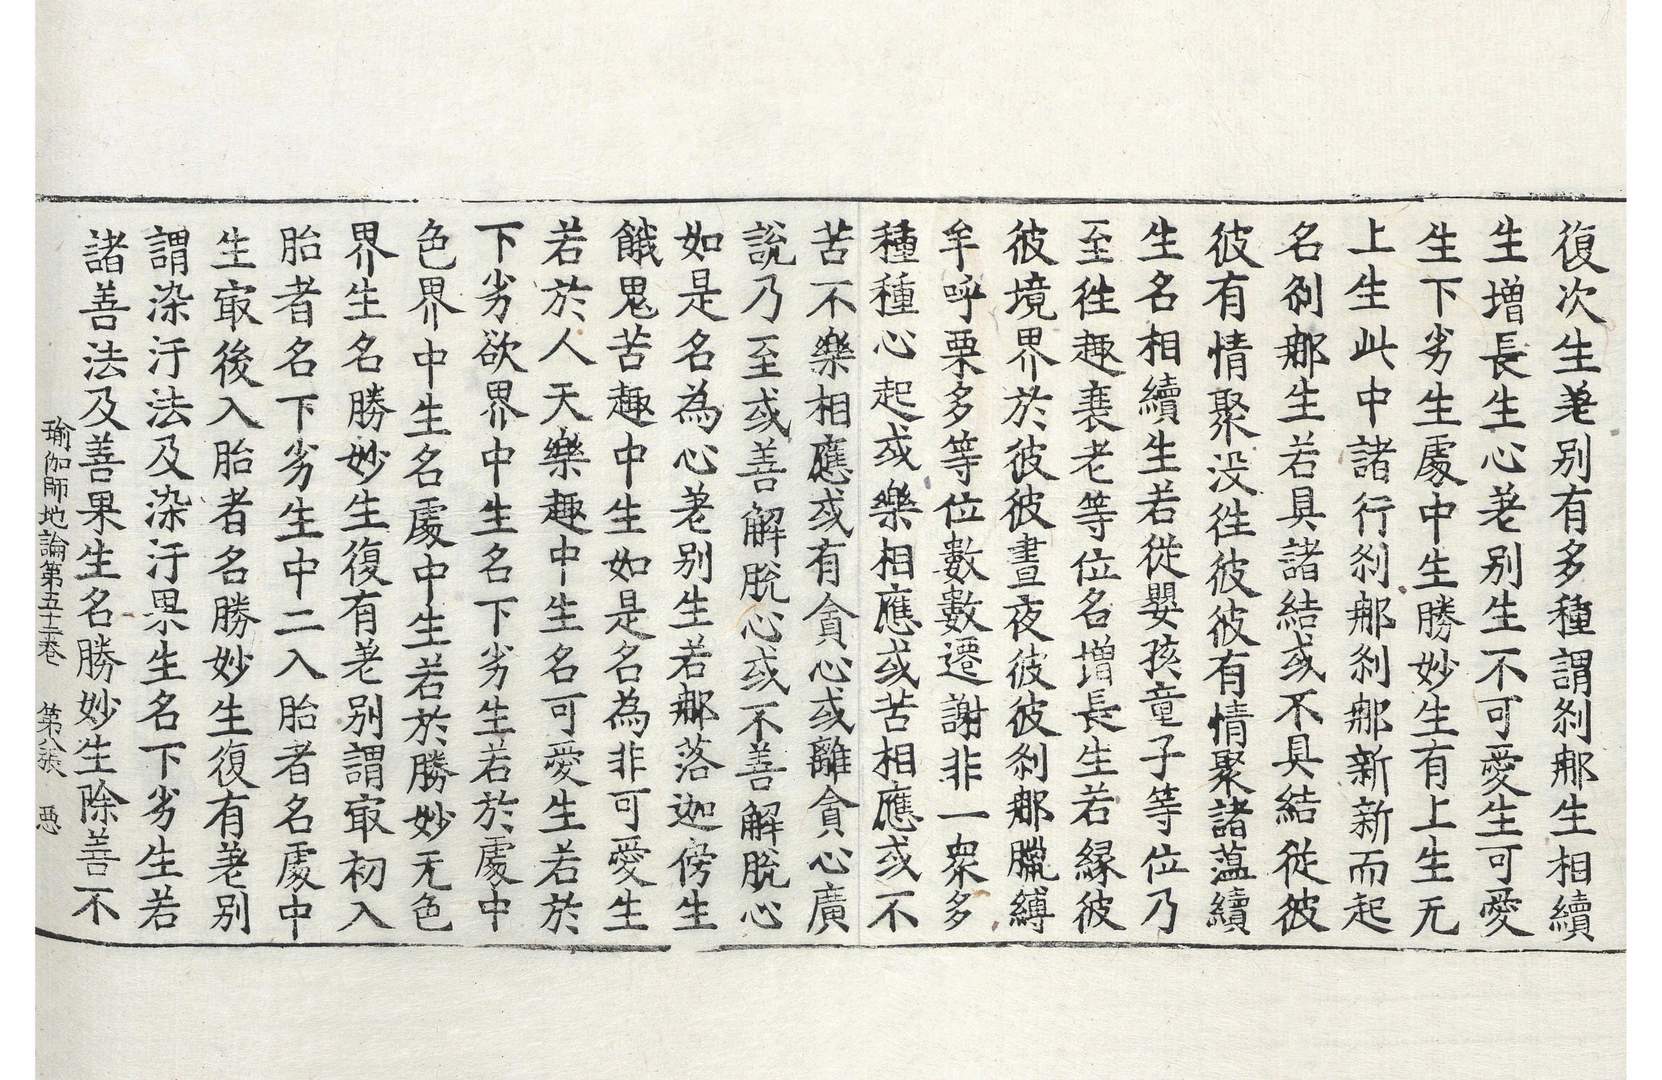 復次生差别有多種謂刹那生相續
生增長生心差别生不可愛生可愛
生下劣生處中生勝妙生有上生无
上生此中諸行刹那刹那新新而起
名刹那生若具諸結或不具結從彼
彼有情聚没往彼彼有情聚諸蕰續
生名相續生若從嬰孩童子等位乃
至往趣衰老等位名增長生若縁彼
彼境界於彼彼晝夜彼彼刹那臘縛
牟呼栗多等位數數遷謝非一衆多
種種心起或樂相應或苦相應或不
苦不樂相應或有貪心或離貪心廣
說乃至或善解脫心或不善解脫心
如是名為心差别生若那落迦傍生
餓鬼苦趣中生如是名為非可愛生
若於人天樂趣中生名可愛生若於
下劣欲界中生名下劣生若於處中
色界中生名處中生若於勝妙无色
界生名勝妙生復有差别謂㝡初入
胎者名下劣生中二入胎者名處中
生㝡後入胎者名勝妙生復有差别
謂染汙法及染汙果生名下劣生若
諸善法及善果生名勝妙生除善不
瑜伽師地論第五十二卷　第八張　惡